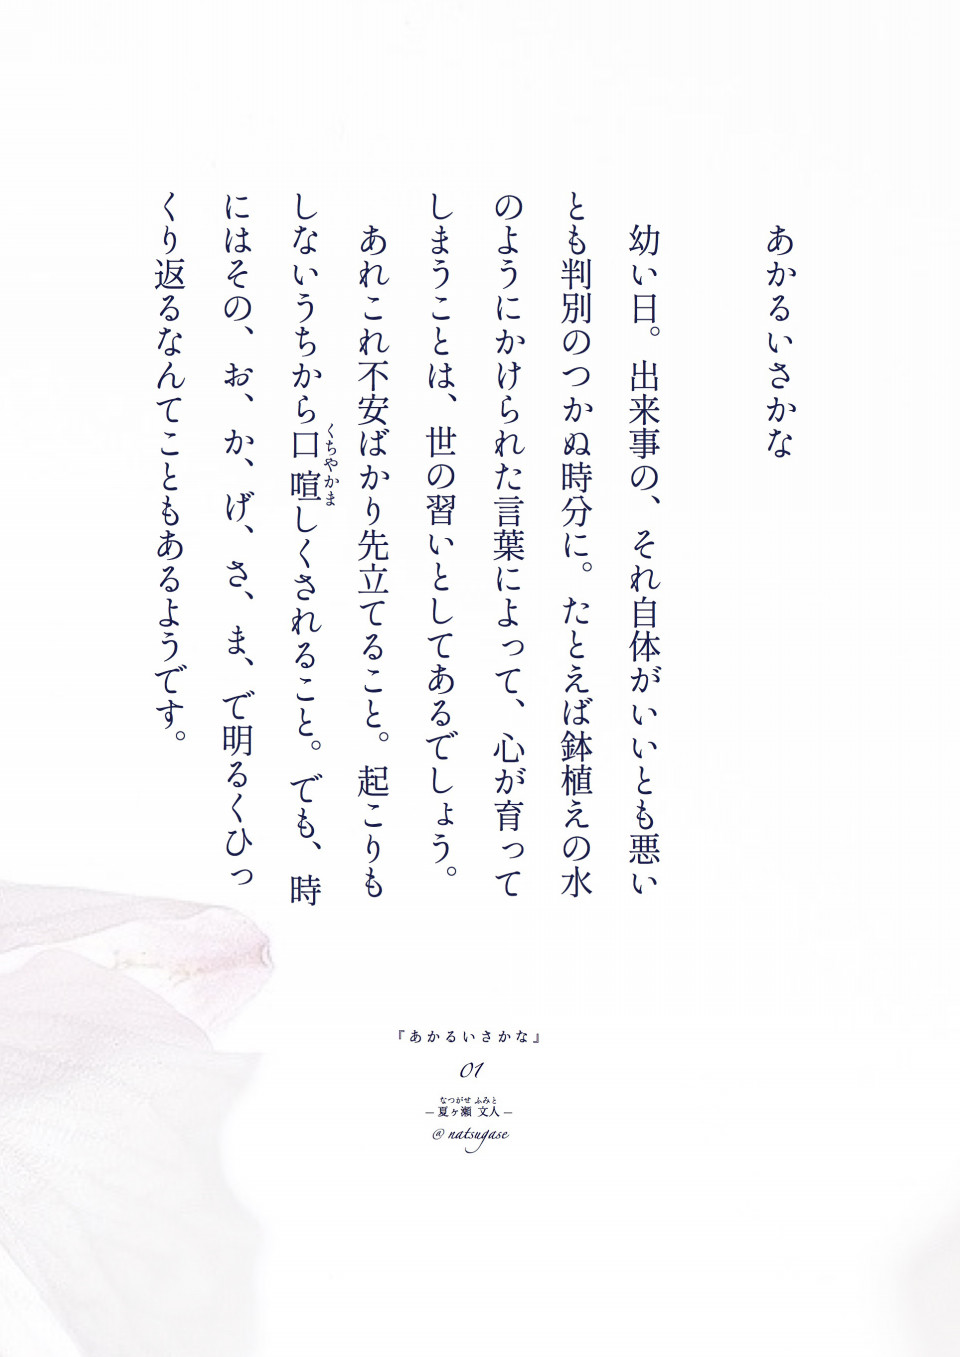 あかるいさかな
幼い日。出来事の、それ自体がいいとも悪い
とも判別のつかぬ時分に。たとえば鉢植えの水
のようにかけられた言葉によって、心が育って
しまうことは、世の習いとしてあるでしょう。
あれこれ不安ばかり先立てること。起こりも
しないうちから口喧しくされること。でも、時
くちやかま
にはその、お、か、げ、さ、ま、で明るくひっ
くり返るなんてこともあるようです。
『あかるいさかな』
01
なつがせ ふみと
― 夏ヶ瀬 文人 ―
@natsugase